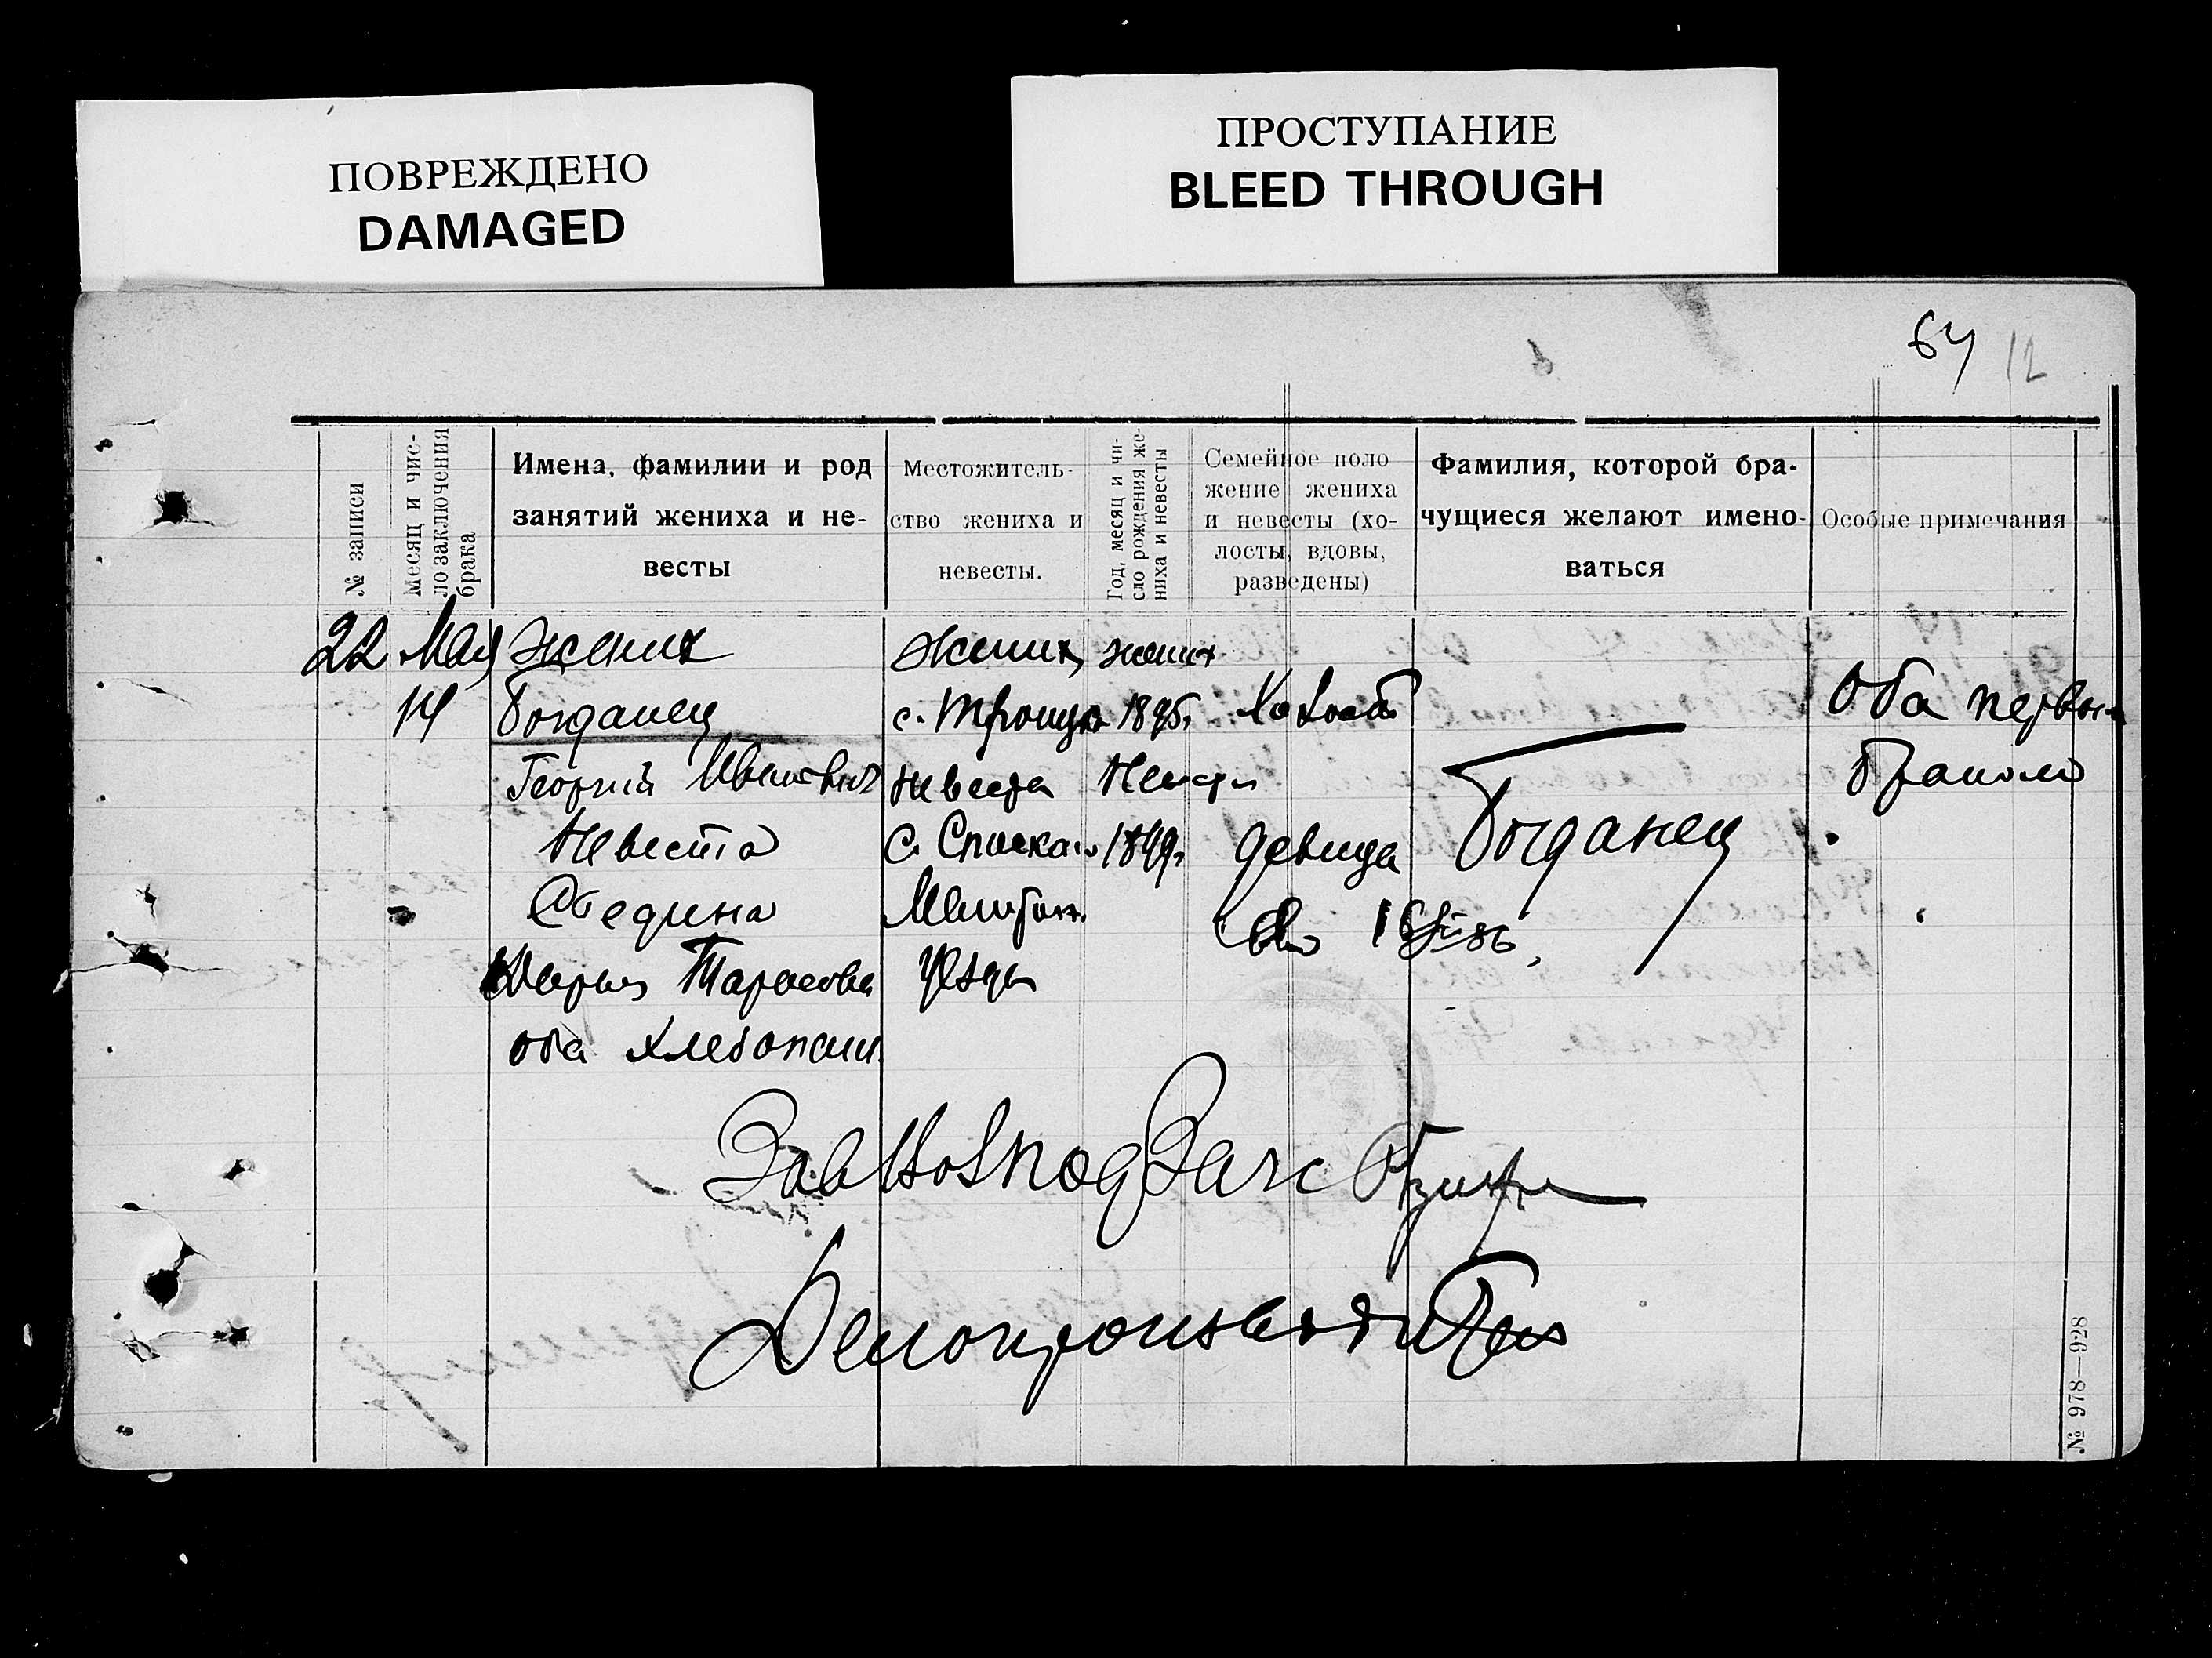 ПОВРЕЖДЕНО
DAMAGED
ПРОСТУПАНИЕ
BLEED THROUGH
64 12
№ записи
Месяц и чис-
ло заключения
брака
Имена, фамилии и род
занятий жениха и не-
весты
Местожитель-
ство жениха и
невесты.
Год, месяц и чи-
сло рождения же-
ниха и невесты
Семейное поло
жение жениха
и невесты (хо-
лосты, вдовы,
разведены)
Фамилия, которой бра-
чущиеся желают имено-
ваться
Особые примечания
22 Мая жених
14 Богданец
Георгий Иванович
Невеста
Стедина
Мария Тарасова
оба хлебопаш.
жених
с. Троицк
невеста
с. Спаска
уезда
жених
1895г.
Невеста
1899г.
Холост
девица
Богданец
Оба первым
браком
Зав Волпод Загс
Делопроизводит
№ 978—928